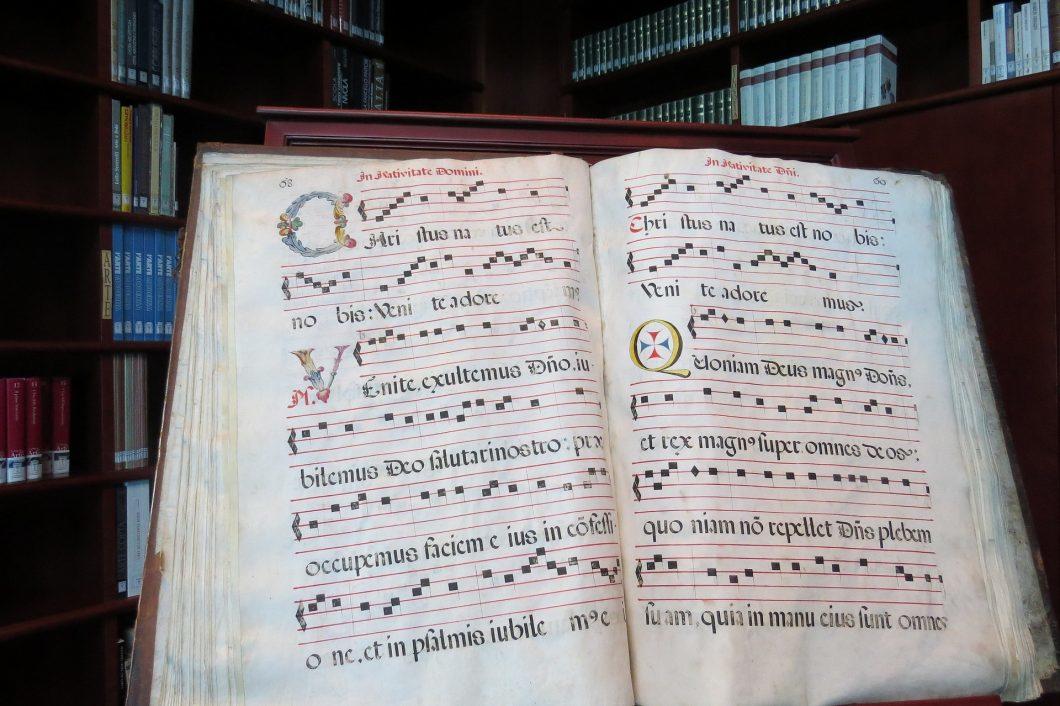 68
In Nativitate Domini.
CHri stus na tus est
no bis: Veni te adore m9
Ps. VEnite, exultemus Dño, iu-
bilemus Deo salutari nostro: præ
occupemus faciem e ius in cõfessi-
o ne, et in psalmis iubile m9 e
In Nativitate Dñi.
Chri stus na tus est no bis:
Veni te adore mus.
Quoniam Deus magn9 Dñs,
et rex magn9 super omnes deos:
quo niam nõ repellet Dñs plebem
su am, quia in manu eius sunt omnes
ARTE
L'ARTE
L'ARTE
L'ARTE
L'ARTE